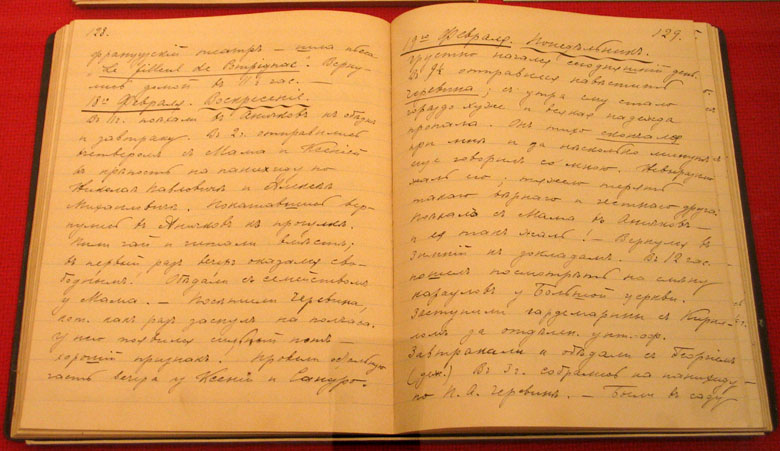 128.
французскій театръ — шла пьеса
„Le filleul de Pompignac". Верну-
лись домой въ 11½ час.
18го Февраля. Воскресеніе.
Въ 11 г. поѣхали въ Аничковъ къ обѣднѣ
и завтраку. Въ 2 г. отправились
вчетверомъ съ Мама и Ксеніей
въ крѣпость на панихиду по
Николаѣ Павловичѣ и Алексѣѣ
Михаиловичѣ. Покатавшись вер-
нулись въ Аничковъ къ прогулкѣ.
Пили чай и читали вмѣстѣ;
въ первый разъ вечеръ оказался сво-
боднымъ. Обѣдали съ семействомъ
у Мама. — Посѣтили Черевина,
кот. какъ разъ заснулъ на полчаса.
У него появился потъ —
хорошій признакъ. Провели остальную
часть вечера у Ксеніи и Сандро.
129.
19го Февраля. Понедѣльникъ.
Грустно начался сегодняшній день.
Въ 9½ отправился навѣстить
Черевина; съ утра ему стало
гораздо хуже и всякая надежда
пропала. Онъ тихо скончался
при мнѣ и за нѣсколько минутъ
еще говорилъ со мною. Невыразимо
жаль его; тяжело терять
такого вѣрнаго и честнаго друга.
Поѣхалъ къ Мама въ Аничковъ —
и ея такъ жаль! — Вернулся въ
Зимній къ докладамъ. Въ 12 час.
пошелъ посмотрѣть на смѣну
карауловъ у Большой церкви.
Вступили гардемарины съ Кирил-
ломъ за отдѣлен. унт.-оф.
Завтракали и обѣдали съ Георгіемъ
(деж.) Въ 3 г. собрались на панихиду
по П. А. Черевинѣ. — Были въ саду